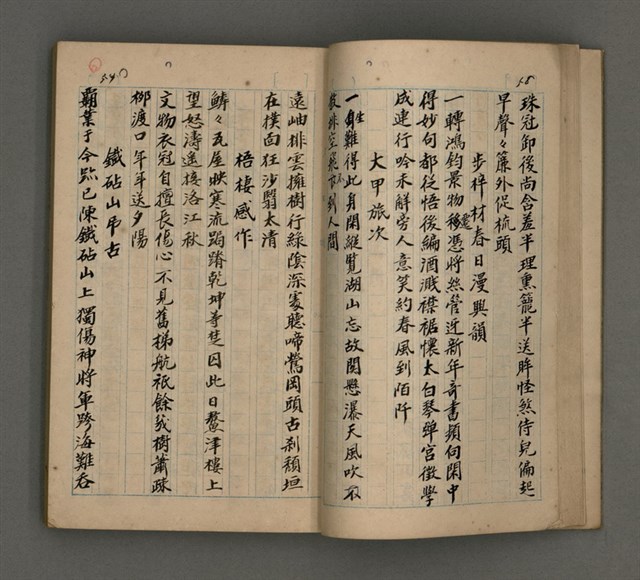 58
珠冠卸後尚含羞半理熏籠半送眸怪煞侍兒偏起
早聲々簾外促梳頭
步梓材春日漫興韻
一轉鴻鈞景物移憑將絲管近新年奇書頻向閑中
得妙句都從悟後編酒濺襟裾懷太白琴彈宮徵學
成連行吟未解旁人意笑約春風到陌阡
大甲旅次
一生難得此身閑縱覽湖山忘故關懸瀑天風吹不
散排空飛下到人間
遠岫排雲擁樹行綠陰深處聽啼鶯岡頭古剎頹垣
在撲面狂沙翳太清
梧棲感作
鱗々瓦屋映寒流跼蹐乾坤等楚囚此日鰲津樓上
望怒濤遙接洛江秋
文物衣冠自擅長傷心不見舊梯航祇餘幾樹蕭疎
柳渡口年年送夕陽
鐵砧山弔古
霸業于今跡已陳鐵砧山上獨傷神將軍跨海難吞